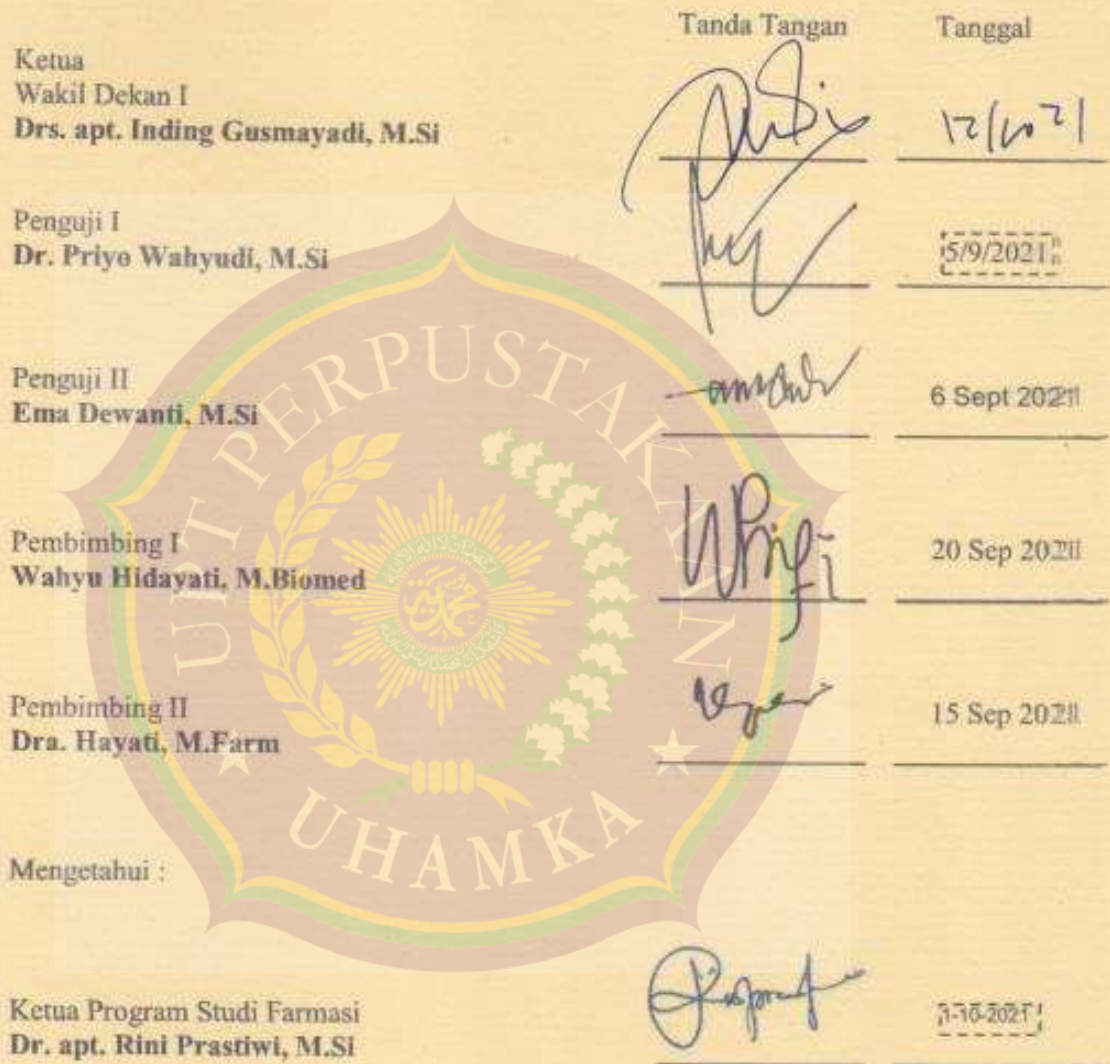 Tanda Tangan Tanggal
Ketua
Wakil Dekan I
Drs. apt. Inding Gusmayadi, M.Si
12/10 21
Penguji I
Dr. Priyo Wahyudi, M.Si
5/9/2021
Penguji II
Ema Dewanti, M.Si
6 Sept 2021
Pembimbing I
Wahyu Hidayati, M.Biomed
20 Sep 2021
Pembimbing II
Dra. Hayati, M.Farm
15 Sep 2021
Mengetahui :
Ketua Program Studi Farmasi
Dr. apt. Rini Prastiwi, M.Si
1-10-2021
UPT PERPUSTAKAAN
UHAMKA